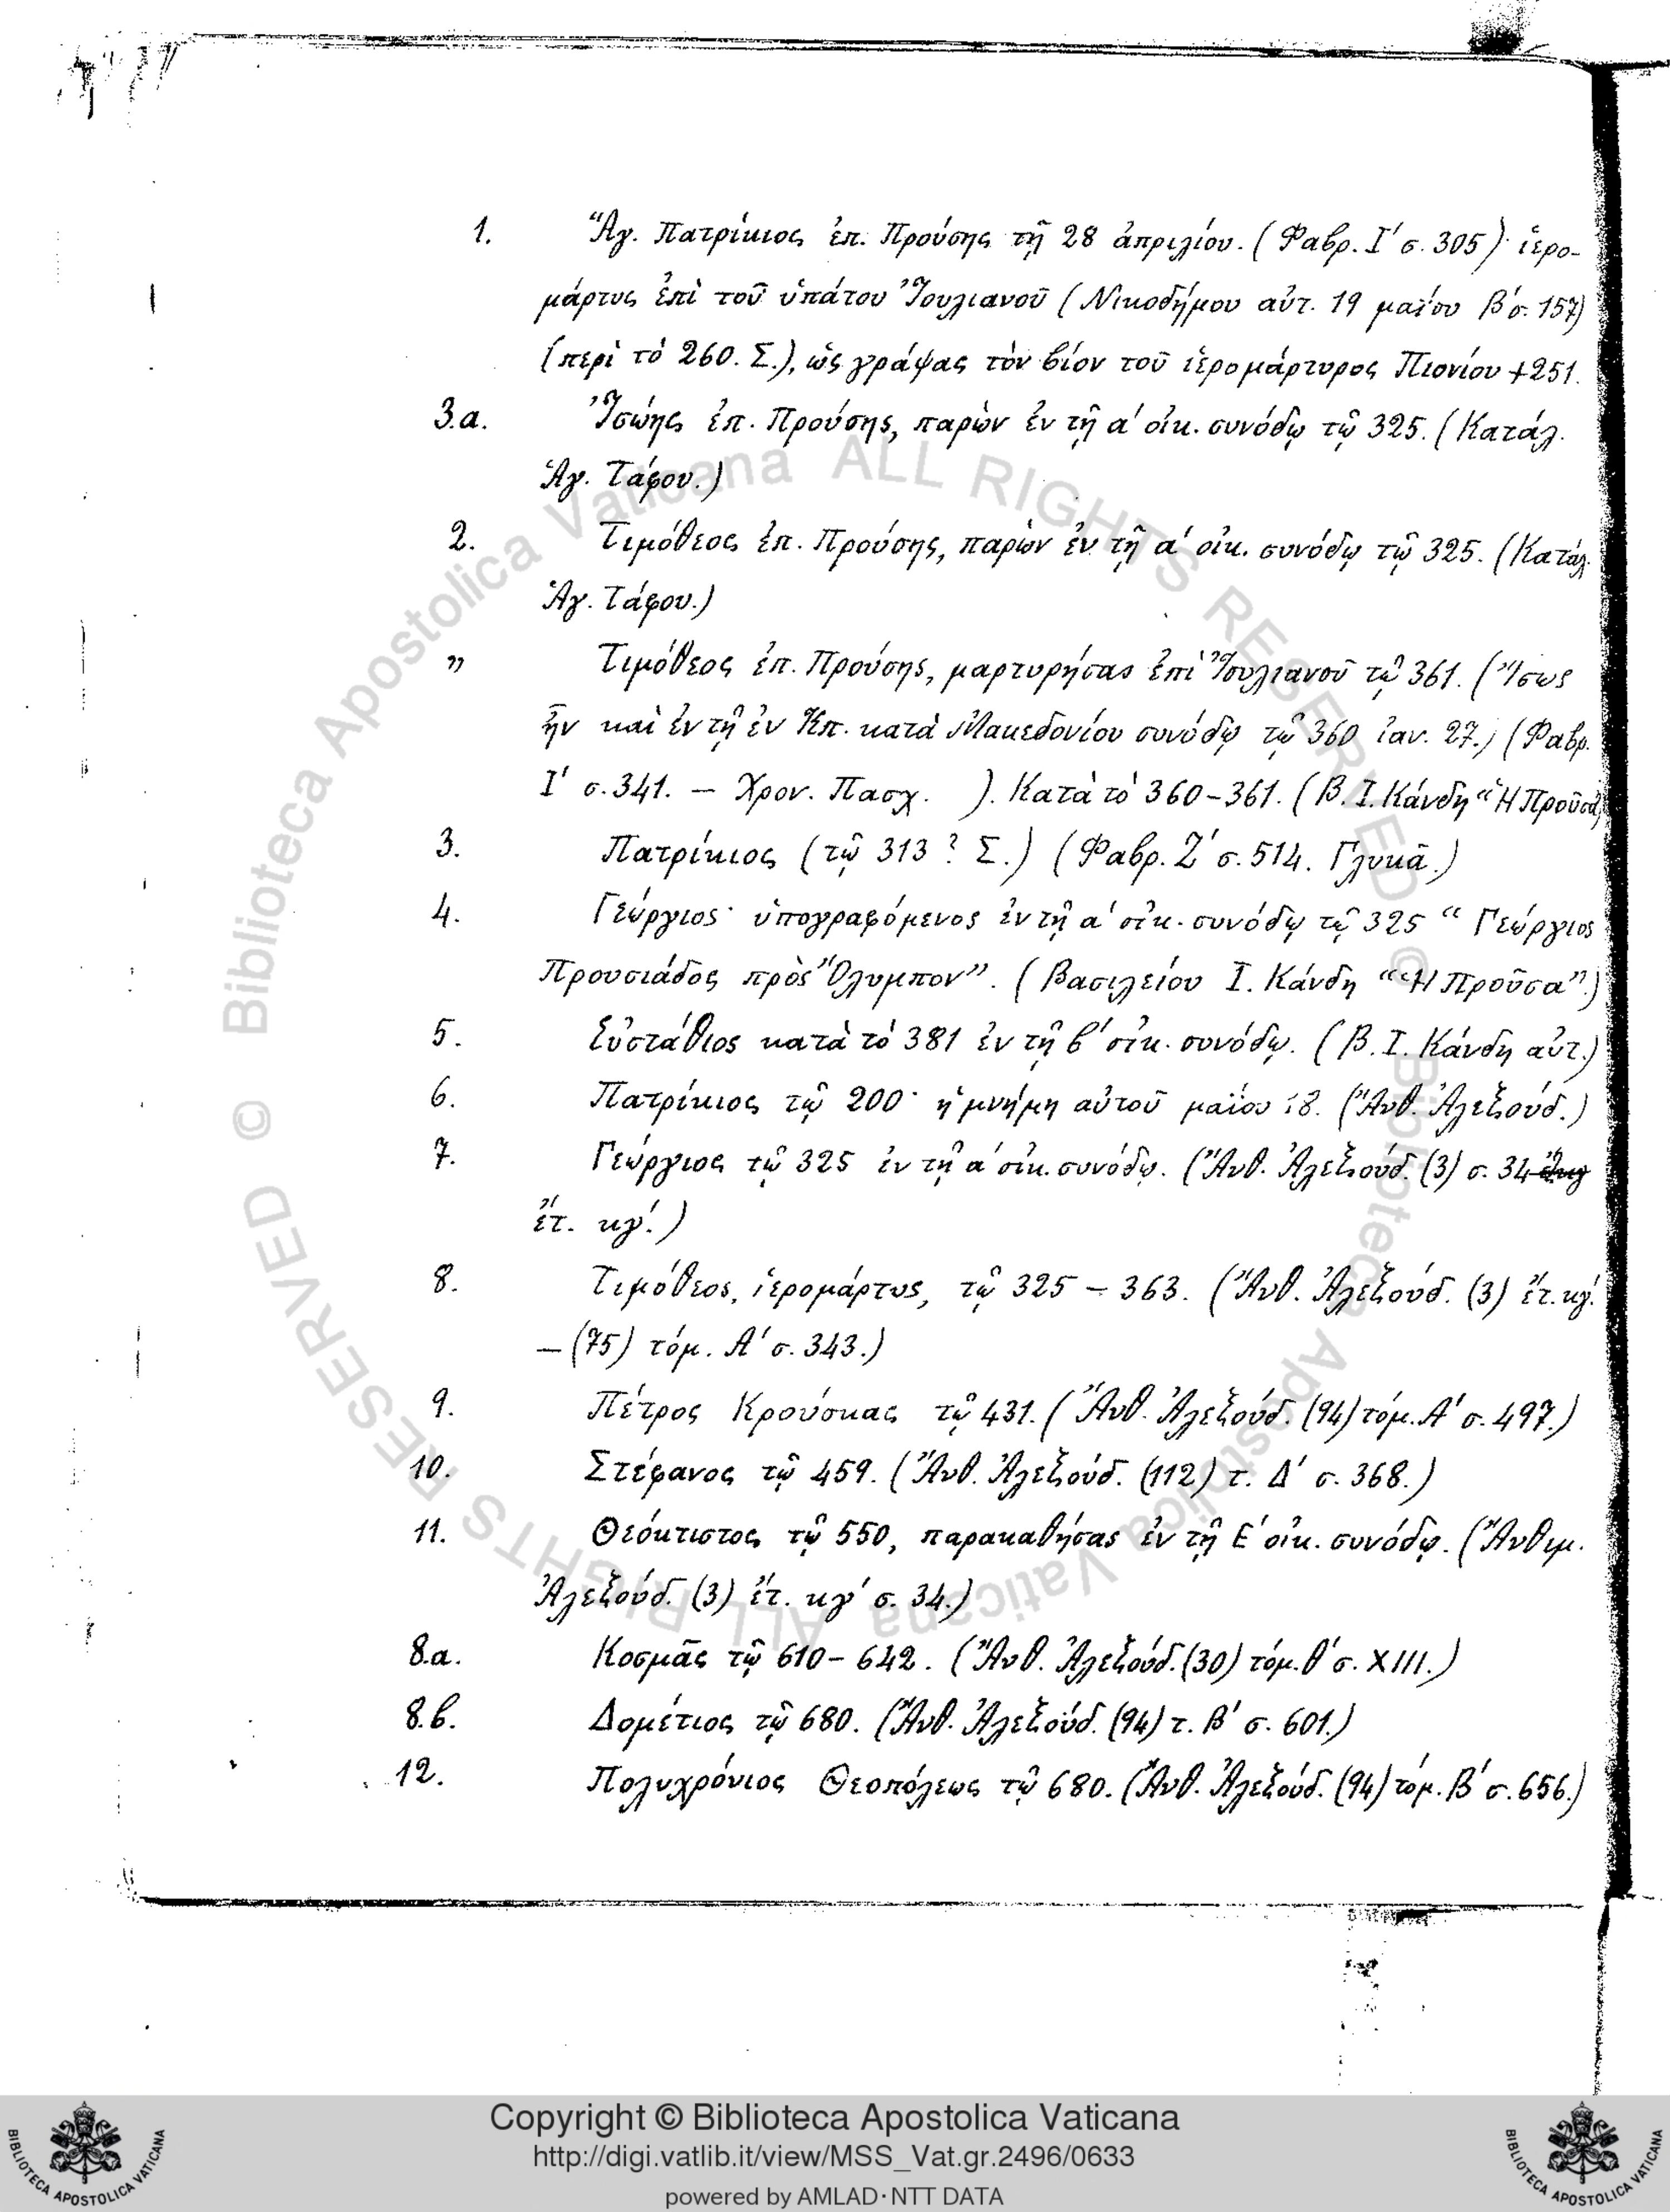 1. Ἅγ. Πατρίκιος ἐπ. Προύσης τῇ 28 ἀπριλίου. (Φαβρ. Ι΄ σ. 305)· ἱερο-
μάρτυς ἐπὶ τοῦ ὑπάτου Ἰουλιανοῦ (Νικοδήμου αὐτ. 19 μαΐου Β΄ σ. 157)
(περὶ τὸ 260. Σ.), ὡς γράψας τὸν βίον τοῦ ἱερομάρτυρος Πιονίου +251.
3.α. Ἰσώης ἐπ. Προύσης, παρὼν ἐν τῇ α΄ οἰκ. συνόδῳ τῷ 325. (Κατάλ.
Ἁγ. Τάφου.)
2. Τιμόθεος ἐπ. Προύσης, παρὼν ἐν τῇ α΄ οἰκ. συνόδῳ τῷ 325. (Κατάλ.
Ἁγ. Τάφου.)
” Τιμόθεος ἐπ. Προύσης, μαρτυρήσας ἐπὶ Ἰουλιανοῦ τῷ 361. (Ἴσως
ἦν καὶ ἐν τῇ ἐν Κπ. κατὰ Μακεδονίου συνόδῳ τῷ 360 ἰαν. 27.) (Φαβρ.
Ι΄ σ. 341. – Χρον. Πασχ. ). Κατὰ τὸ 360–361. (Β. Ι. Κάνδη “Ἡ Προῦσα)
3. Πατρίκιος (τῷ 313 ? Σ.) (Φαβρ. Ζ΄ σ. 514. Γλυκᾶ.)
4. Γεώργιος· ὑπογραφόμενος ἐν τῇ α΄ οἰκ. συνόδῳ τῷ 325 “Γεώργιος
Προυσιάδος πρὸς Ὄλυμπον”. (Βασιλείου Ι. Κάνδη “Ἡ Προῦσα”.)
5. Εὐστάθιος κατὰ τὸ 381 ἐν τῇ β΄ οἰκ. συνόδῳ. (Β. Ι. Κάνδη αὐτ.)
6. Πατρίκιος τῷ 200· ἡ μνήμη αὐτοῦ μαΐου 18. (Ἄνθ. Ἀλεξούδ.)
7. Γεώργιος τῷ 325 ἐν τῇ α΄ οἰκ. συνόδῳ. (Ἄνθ. Ἀλεξούδ. (3) σ. 34
ἔτ. κγ΄.)
8. Τιμόθεος, ἱερομάρτυς, τῷ 325 – 363. (Ἄνθ. Ἀλεξούδ. (3) ἔτ. κγ΄.
– (75) τόμ. Α΄ σ. 343.)
9. Πέτρος Κρούσκας τῷ 431. (Ἄνθ. Ἀλεξούδ. (94) τόμ. Α΄ σ. 497.)
10. Στέφανος τῷ 459. (Ἄνθ. Ἀλεξούδ. (112) τ. Δ΄ σ. 368.)
11. Θεόκτιστος τῷ 550, παρακαθήσας ἐν τῇ Ε΄ οἰκ. συνόδῳ. (Ἄνθιμ.
Ἀλεξούδ. (3) ἔτ. κγ΄ σ. 34.)
8.α. Κοσμᾶς τῷ 610–642. (Ἄνθ. Ἀλεξούδ. (30) τόμ. θ΄ σ. XIII.)
8.β. Δομέτιος τῷ 680. (Ἄνθ. Ἀλεξούδ. (94) τ. Β΄ σ. 601.)
12. Πολυχρόνιος Θεοπόλεως τῷ 680. (Ἄνθ. Ἀλεξούδ. (94) τόμ. Β΄ σ. 656.)
© Biblioteca Apostolica Vaticana ALL RIGHTS RESERVED © Biblioteca Apostolica Vaticana ALL RIGHTS RESERVED
Copyright © Biblioteca Apostolica Vaticana
http://digi.vatlib.it/view/MSS_Vat.gr.2496/0633
powered by AMLAD·NTT DATA
BIBLIOTECA APOSTOLICA VATICANA
BIBLIOTECA APOSTOLICA VATICANA